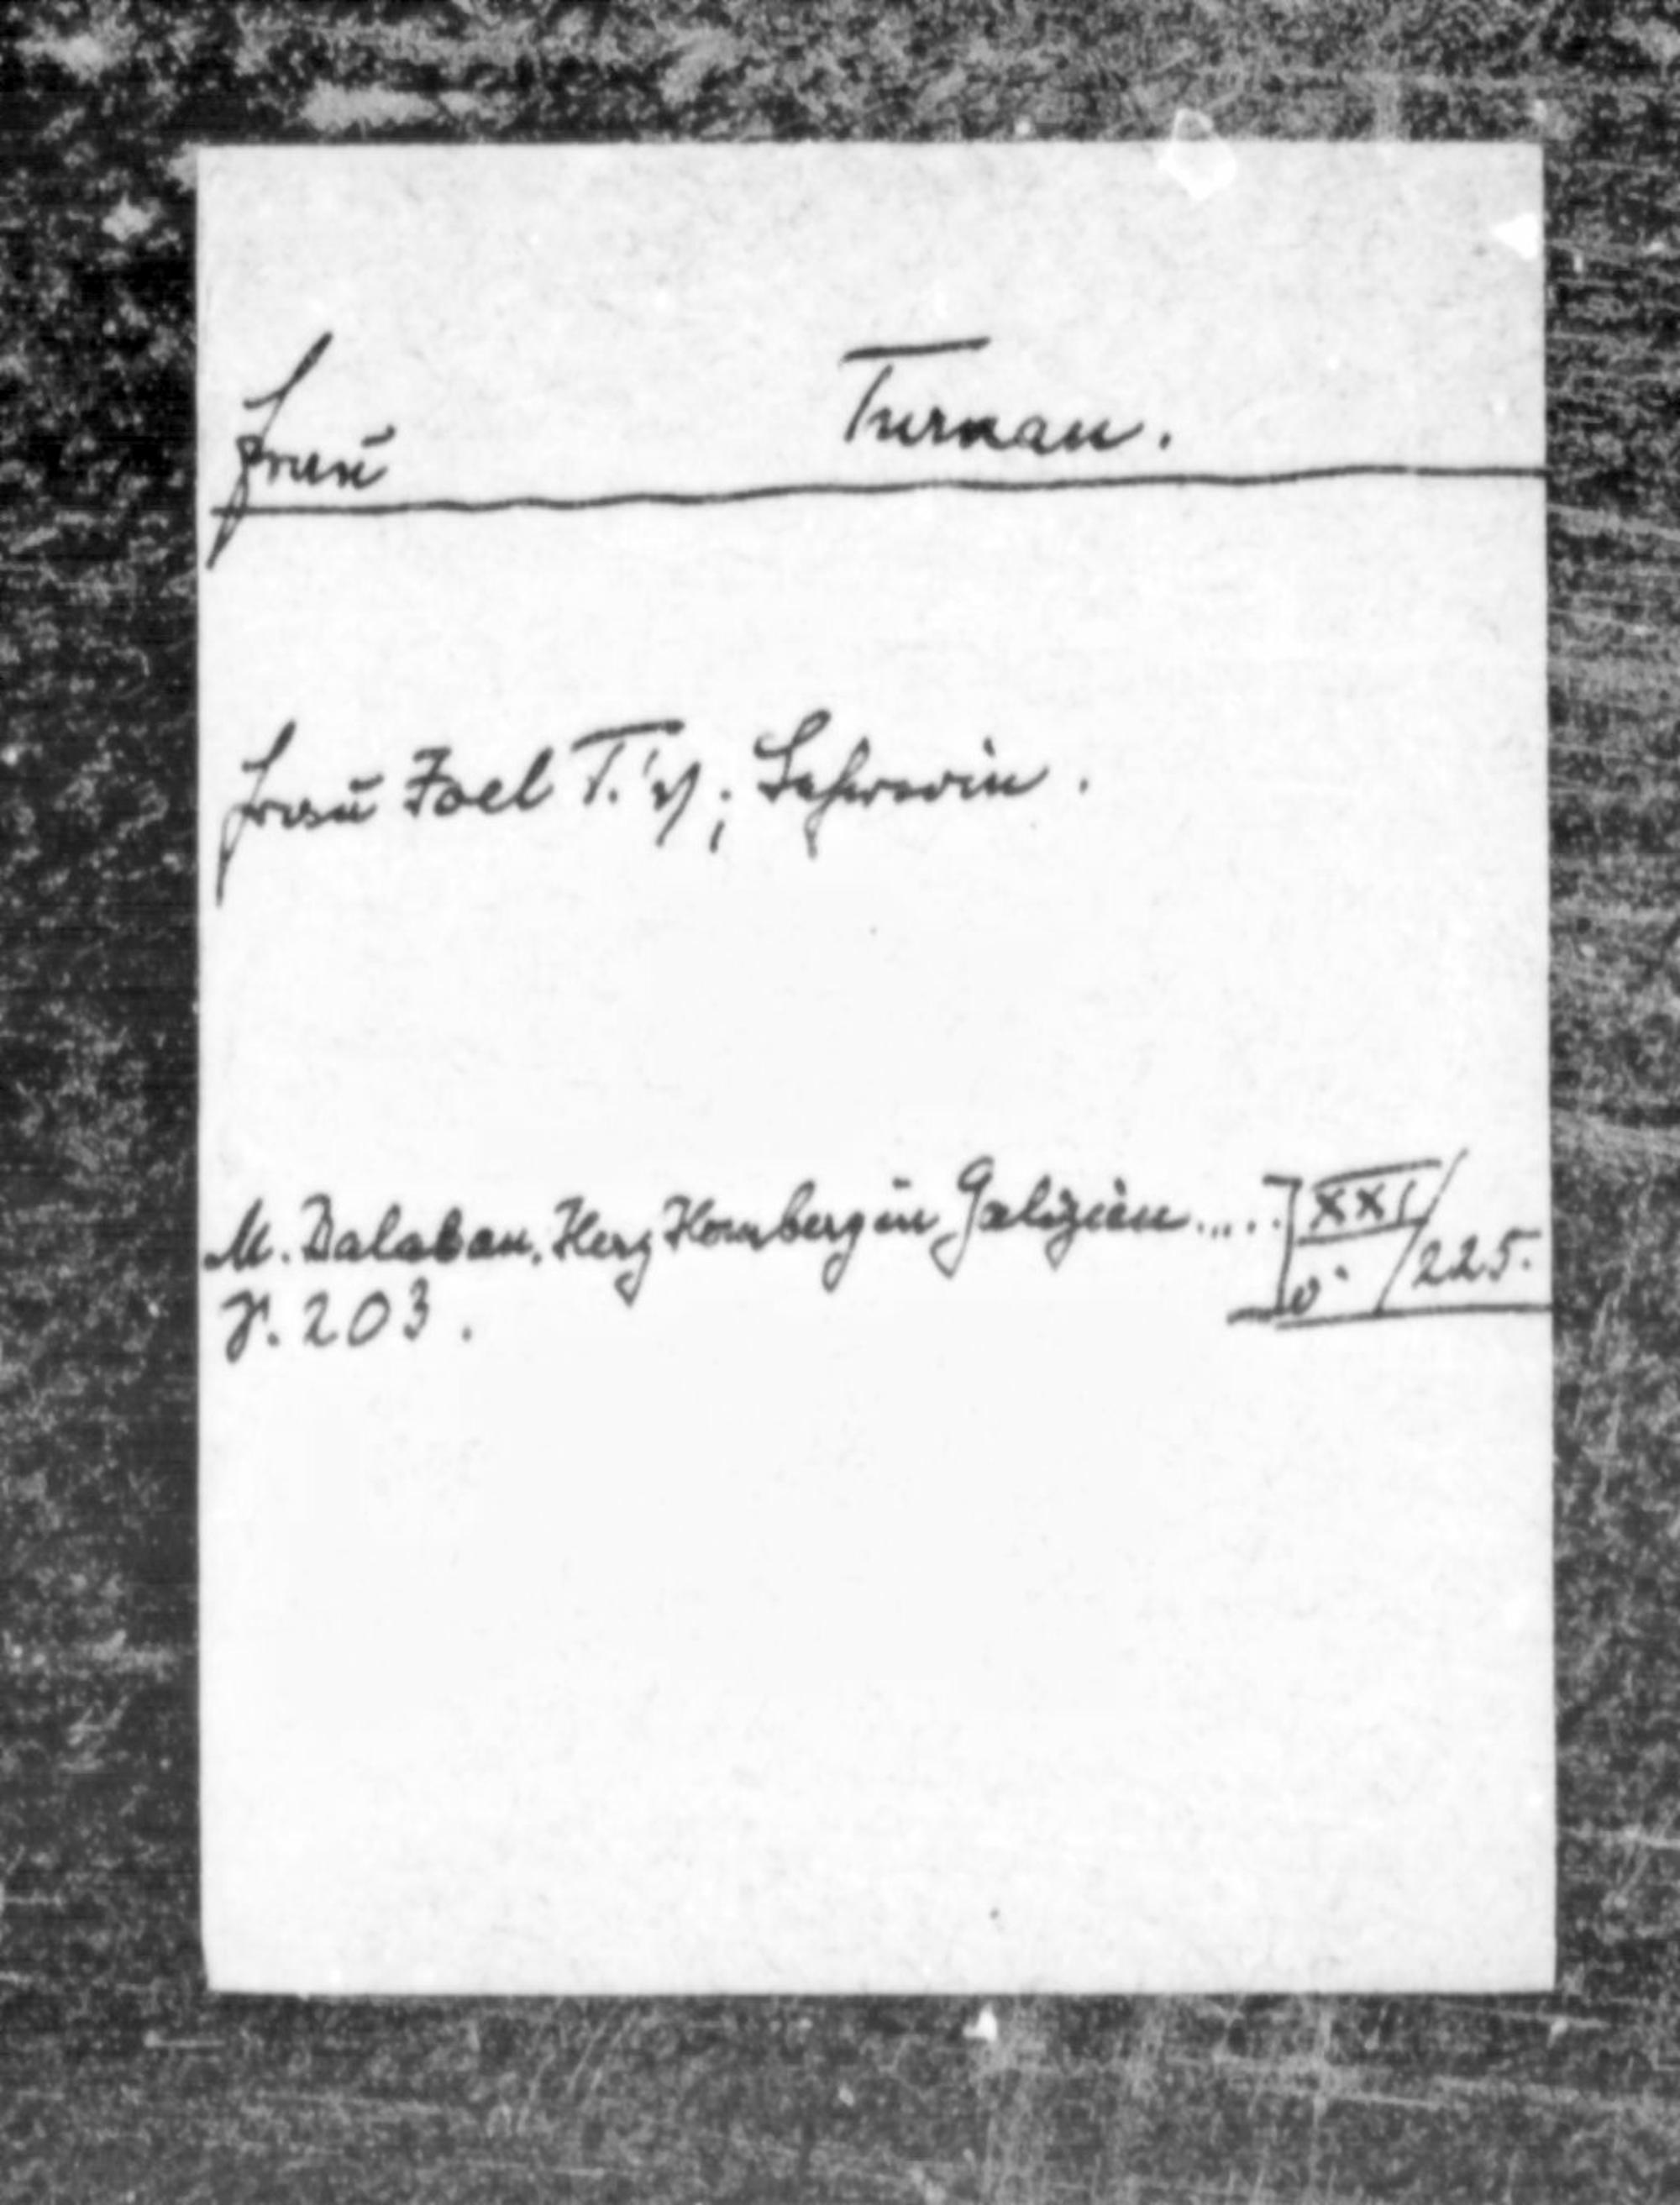 Frau Turnau.
Frau Joel T.'s; Lehrerin.
M. Balaban, Herz Homberg in Galizien..... ] XXI / 225.
S. 203.